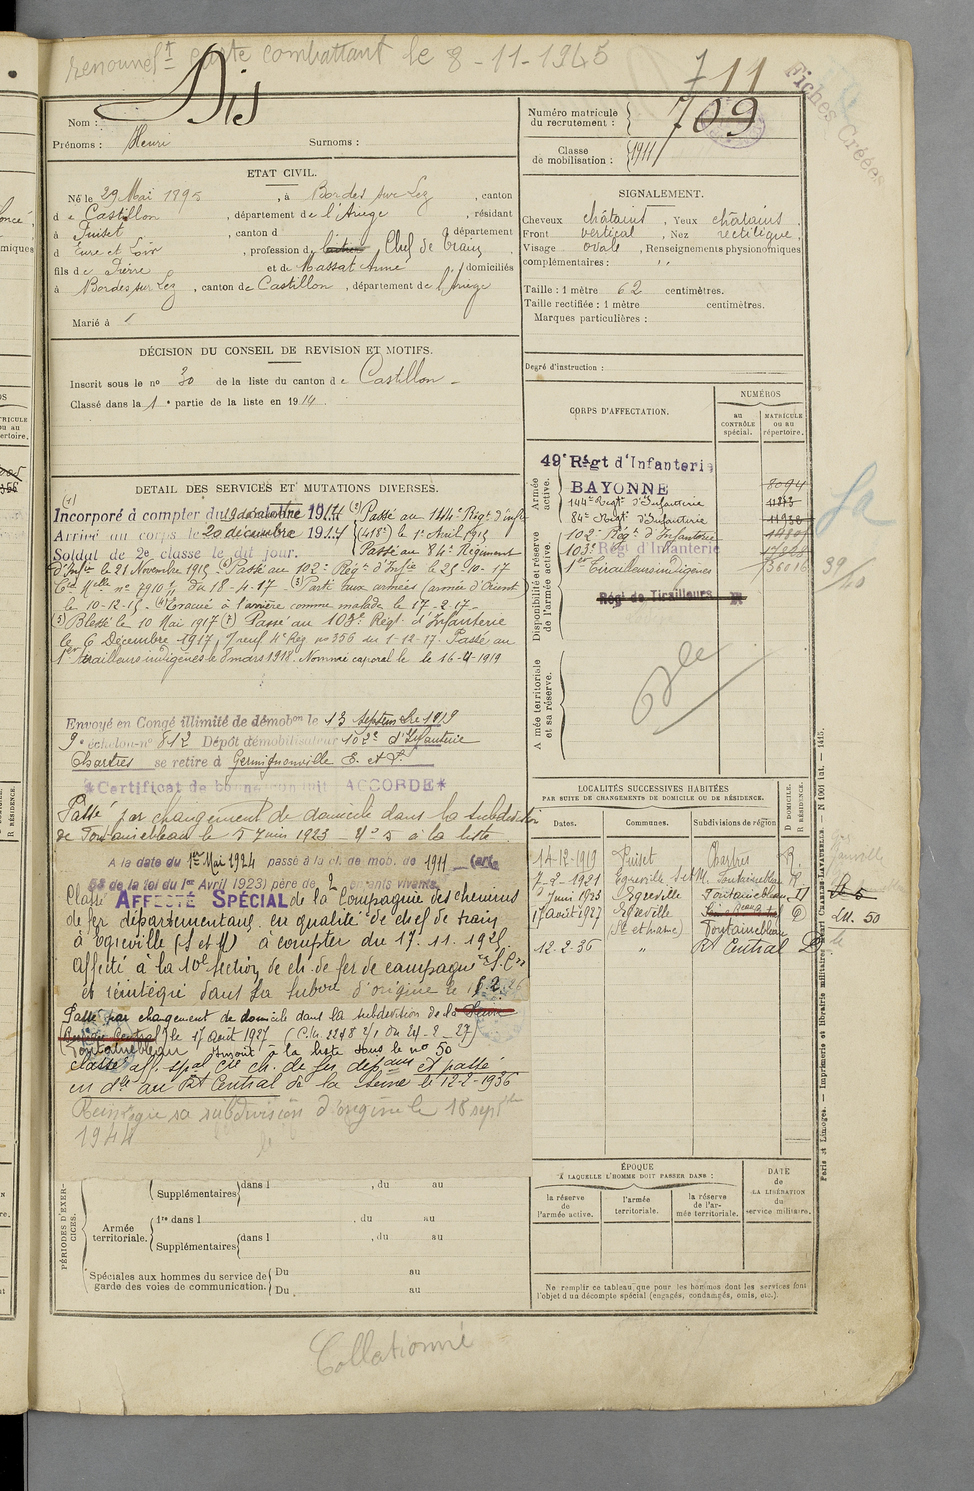 renouvelt carte combattant le 8-11-1945
711
Fiches Créées
Nom : Dis
Prénoms : Henri Surnoms :
Numéro matricule du recrutement : 709
Classe de mobilisation : 1911
ETAT CIVIL.
Né le 29 Mai 1895, à Bordes sur Lez, canton
de Castillon, département de l'Ariege, résidant
à Puiset, canton d , département
d Eure et Loir, profession de Chef de train
fils de Pierre et de Massat Anne, domiciliés
à Bordes sur Lez, canton de Castillon, département de l'Ariege
Marié à
SIGNALEMENT.
Cheveux châtains, Yeux châtains
Front vertical, Nez rectiligne,
Visage ovale, Renseignements physionomiques
complémentaires : "
Taille : 1 mètre 62 centimètres.
Taille rectifiée : 1 mètre centimètres.
Marques particulières :
Degré d'instruction :
DÉCISION DU CONSEIL DE REVISION ET MOTIFS.
Inscrit sous le no 30 de la liste du canton de Castillon
Classé dans la 1e partie de la liste en 1914
CORPS D'AFFECTATION.
NUMÉROS
au CONTRÔLE spécial.
MATRICULE ou au répertoire.
Armée active.
49e Régt d'Infanterie
BAYONNE
144e Régt d'Infanterie
84e Régt d'Infanterie
Disponibilité et réserve de l'armée active.
102e Régt d'Infanterie
103e Régt d'Infanterie
1er Tirailleurs indigènes 36016
Régt de Tirailleurs
Armée territoriale et sa réserve.
39/40
DETAIL DES SERVICES ET MUTATIONS DIVERSES.
(1) Incorporé à compter du 19 décembre 1914 (2) Passé au 144e Régt d'infie
Arrivé au corps le 20 décembre 1914 (418e) le 1er Avril 1915
Soldat de 2e classe le dit jour. Passé au 84e Régiment
d'Infie le 21 Novembre 1915 Passé au 102e Régt d'Infie le 25-10-17
du 18-4-17 (3) Parti aux armées (armée d'Orient)
le 10-12-15 - (4) Evacué à l'arrière comme malade le 17-2-17-
(5) Blessé le 10 Mai 1917 (7) Passé au 103e Régt d'Infanterie
le 6 Décembre 1917, no 356 du 1-12-17. Passé au
1er tirailleurs indigènes le 8 mars 1918. Nommé caporal le le 16-4-1919
Envoyé en Congé illimité de démobon le 13 Septembre 1919
9e échelon no 812 Dépôt démobilisateur 102e d'Infanterie
Chartres se retire à Germignonville E. et L.
*Certificat de bonne conduite ACCORDÉ*
Passé par changement de domicile dans la subdivision
de Fontainebleau le 5 Juin 1923 - No 5 à la liste
A la date du 1er Mai 1924 passé à la cl. de mob. de 1911 (art.
58 de la loi du 1er Avril 1923) père de 2 enfants vivants.
Classé AFFECTÉ SPÉCIAL de la Compagnie des chemins
de fer départementaux en qualité de chef de train
à Egreville (S et M) à compter du 17.11.192
Affecté à la 10e Section de ch. de fer de campagne
et réintégré dans sa subdon d'origine le
Passé par changement de domicile dans la subdivision de la Seine
(Bureau Central) le 17 août 1927
(Fontainebleau) Inscrit à la liste sous le no 50
classé aff. spal Cie ch. de fer depaux et passé
en dte au Bt Central de la Seine le 12-2-1936
Réintégré sa subdivision d'origine le 18 septbre
1944
LOCALITÉS SUCCESSIVES HABITÉES
PAR SUITE DE CHANGEMENTS DE DOMICILE OU DE RÉSIDENCE.
Dates. Communes. Subdivisions de région D DOMICILE. R RÉSIDENCE.
14-12-1919 Puiset Chartres R.
7-2-1921 Egreville S et M. Fontainebleau R
5 Juin 1923 Egreville Fontainebleau D
17 août 1927 Egreville Seine Bau Central D
(Se et Marne) Fontainebleau
12-2-36 " Bt Central D
50
PÉRIODES D'EXERCICES.
Supplémentaires dans l , du au
Armée territoriale. 1re dans l , du au
Supplémentaires dans l , du au
Spéciales aux hommes du service de garde des voies de communication. Du au
Du au
ÉPOQUE
A LAQUELLE L'HOMME DOIT PASSER DANS :
la réserve de l'armée active.
l'armée territoriale.
la réserve de l'armée territoriale.
DATE de LA LIBÉRATION du service militaire.
Ne remplir ce tableau que pour les hommes dont les services font
l'objet d'un décompte spécial (engagés, condamnés, omis, etc.).
Paris et Limoges. — Imprimerie et librairie militaires Henri CHARLES-LAVAUZELLE. — N 1001 int. — 1415.
Collationné